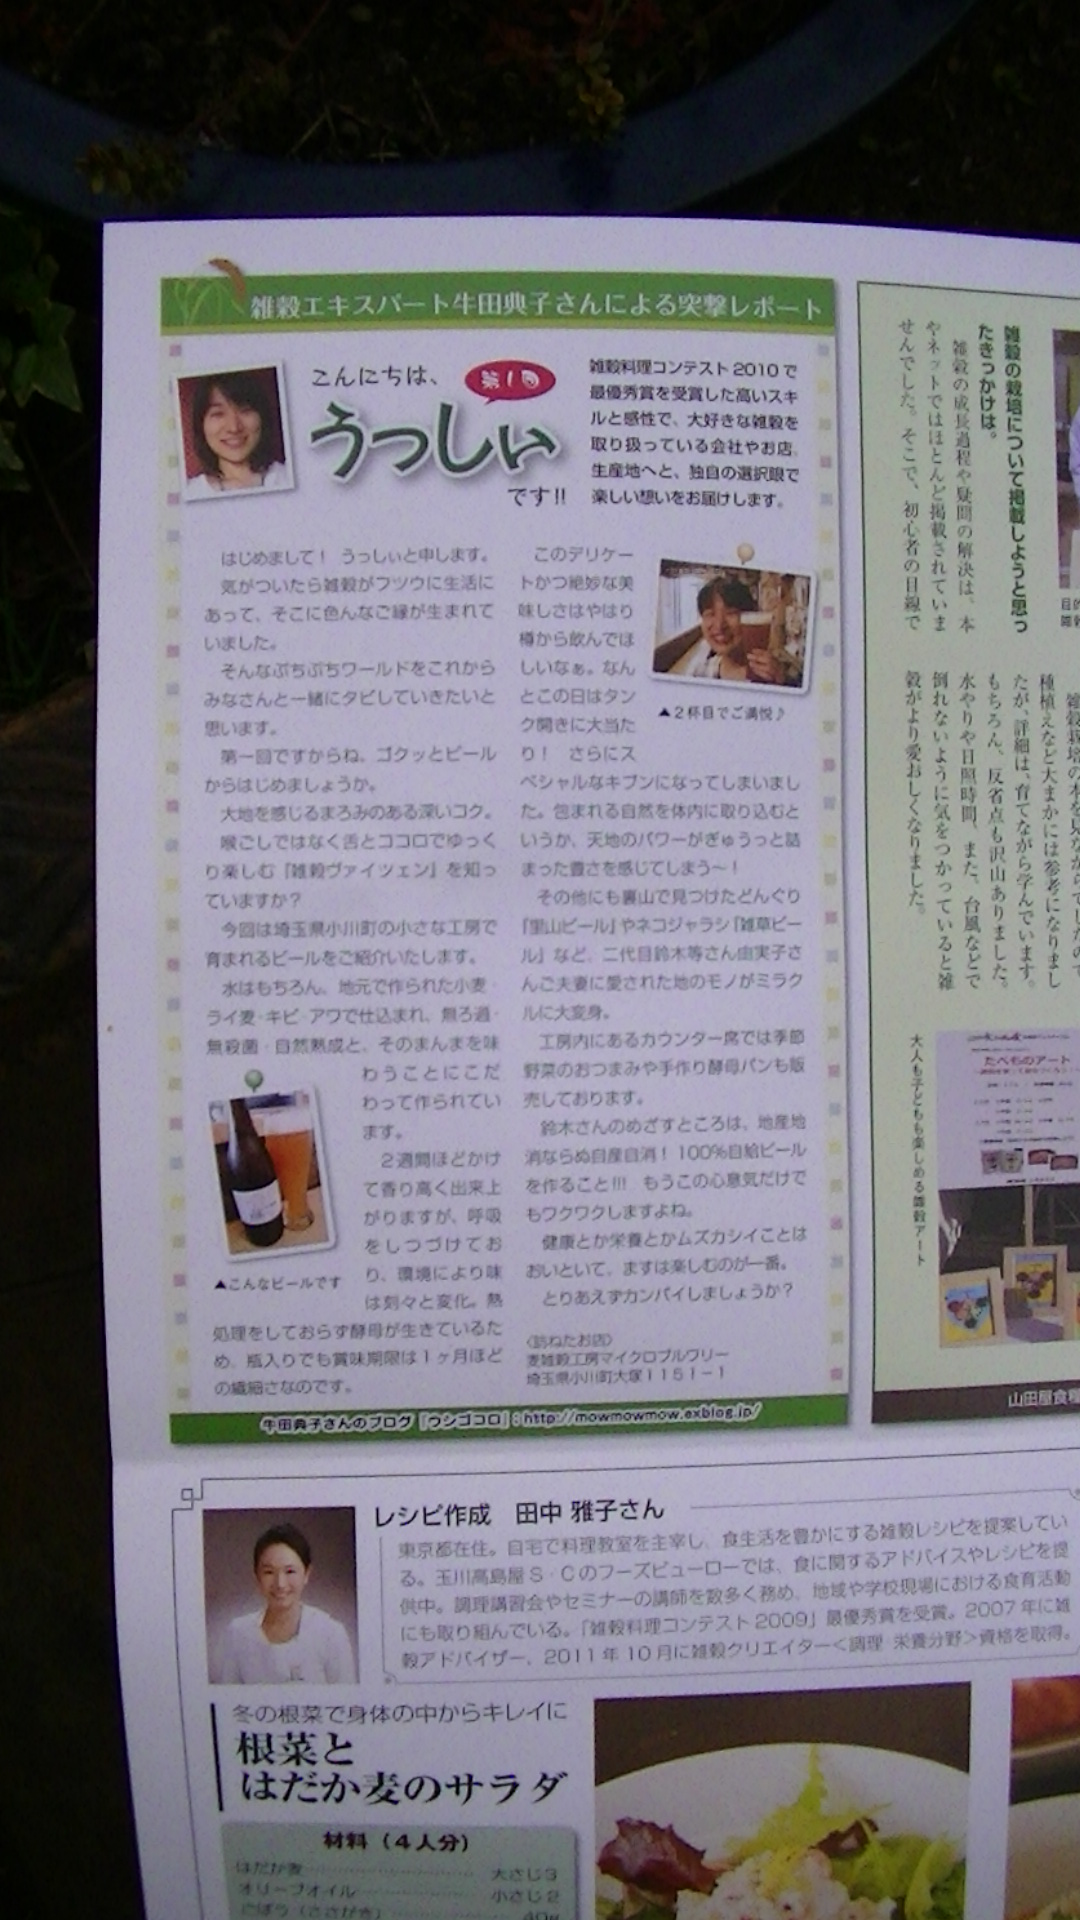 雑穀エキスパート牛田典子さんによる突撃レポート
こんにちは、
第1回
うっしぃ
です!!
雑穀料理コンテスト2010で
最優秀賞を受賞した高いスキ
ルと感性で、大好きな雑穀を
取り扱っている会社やお店、
生産地へと、独自の選択眼で
楽しい想いをお届けします。
はじめまして! うっしぃと申します。
気がついたら雑穀がフツウに生活に
あって、そこに色んなご縁が生まれて
いました。
そんなぷちぷちワールドをこれから
みなさんと一緒にタビしていきたいと
思います。
第一回ですからね。ゴクッとビール
からはじめましょうか。
大地を感じるまろみのある深いコク。
喉ごしではなく舌とココロでゆっく
り楽しむ「雑穀ヴァイツェン」を知っ
ていますか?
今回は埼玉県小川町の小さな工房で
育まれるビールをご紹介いたします。
水はもちろん、地元で作られた小麦・
ライ麦・キビ・アワで仕込まれ、無ろ過・
無殺菌・自然熟成と、そのまんまを味
わうことにこだ
わって作られてい
ます。
2週間ほどかけ
て香り高く出来上
がりますが、呼吸
をしつづけてお
り、環境により味
は刻々と変化。熱
処理をしておらず酵母が生きているた
め、瓶入りでも賞味期限は1ヶ月ほど
の繊細さなのです。
▲こんなビールです
このデリケー
トかつ絶妙な美
味しさはやはり
樽から飲んでほ
しいなぁ。なん
とこの日はタン
ク開きに大当た
り! さらにス
ペシャルなキブンになってしまいまし
た。包まれる自然を体内に取り込むと
いうか、天地のパワーがぎゅうっと詰
まった豊さを感じてしまう〜!
その他にも裏山で見つけたどんぐり
「里山ビール」やネコジャラシ「雑草ビー
ル」など、二代目鈴木等さん由実子さ
んご夫妻に愛された地のモノがミラク
ルに大変身。
工房内にあるカウンター席では季節
野菜のおつまみや手作り酵母パンも販
売しております。
鈴木さんのめざすところは、地産地
消ならぬ自産自消! 100%自給ビール
を作ること!!! もうこの心意気だけで
もワクワクしますよね。
健康とか栄養とかムズカシイことは
おいといて、まずは楽しむのが一番。
とりあえずカンパイしましょうか?
▲2杯目でご満悦♪
〈訪ねたお店〉
麦雑穀工房マイクロブルワリー
埼玉県小川町大塚1151-1
牛田典子さんのブログ「ウシゴコロ」:http://mowmowmow.exblog.jp/
雑穀の栽培について掲載しようと思っ
たきっかけは。
雑穀の成長過程や疑問の解決は、本
やネットではほとんど掲載されていま
せんでした。そこで、初心者の目線で
種植えなど大まかには参考になりまし
たが、詳細は、育てながら学んでいます。
もちろん、反省点も沢山ありました。
水やりや日照時間、また、台風などで
倒れないように気をつかっていると雑
穀がより愛おしくなりました。
大人も子どもも楽しめる雑穀アート
たべものアート
山田屋食糧
レシピ作成 田中 雅子さん
東京都在住。自宅で料理教室を主宰し、食生活を豊かにする雑穀レシピを提案してい
る。玉川高島屋S・Cのフーズビューローでは、食に関するアドバイスやレシピを提
供中。調理講習会やセミナーの講師を数多く務め、地域や学校現場における食育活動
にも取り組んでいる。「雑穀料理コンテスト2009」最優秀賞を受賞。2007年に雑
穀アドバイザー、2011年10月に雑穀クリエイター<調理・栄養分野>資格を取得。
冬の根菜で身体の中からキレイに
根菜と
はだか麦のサラダ
材料(4人分)
はだか麦 大さじ3
オリーブオイル 小さじ2
ごぼう(ささがき) 40g